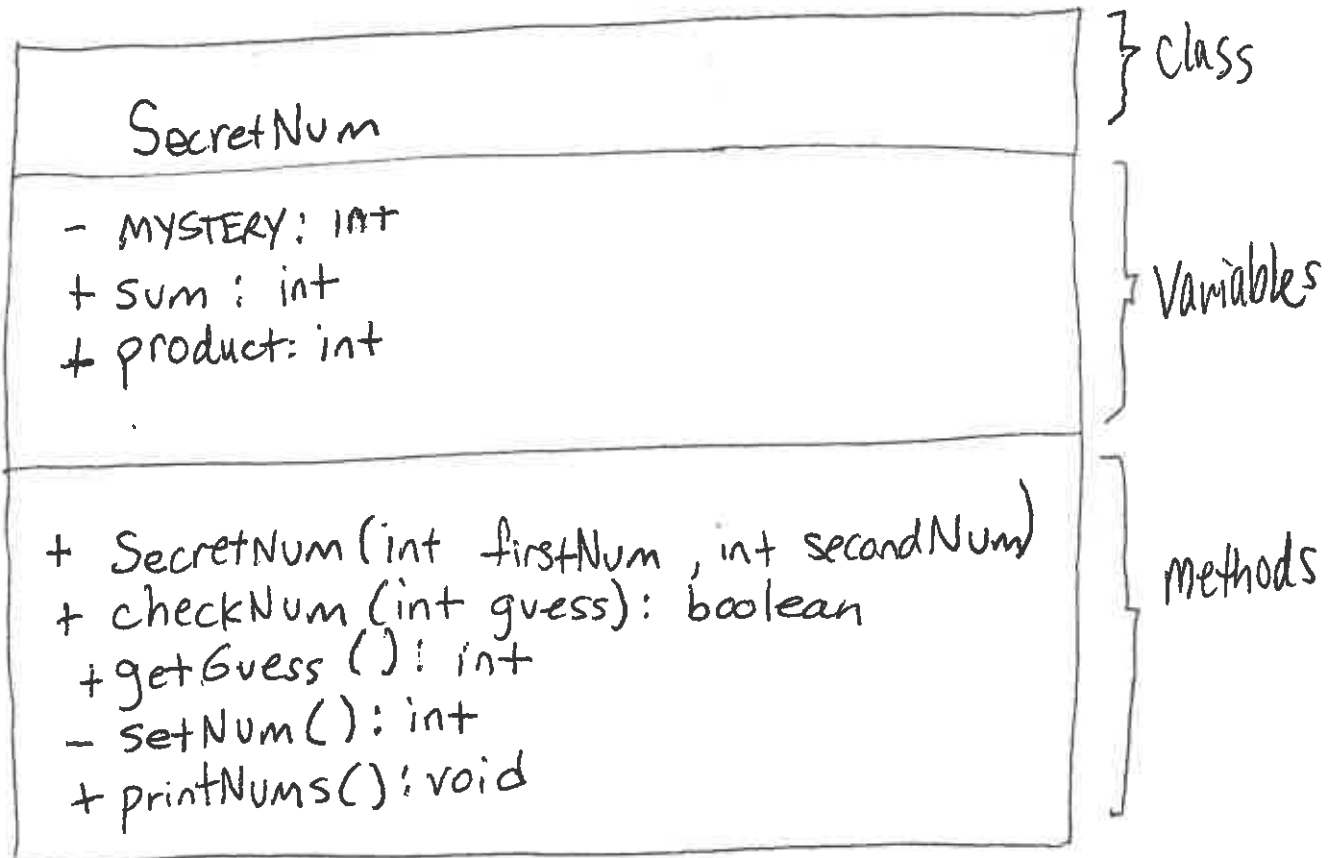 SecretNum
} class
- MYSTERY: int
+ sum: int
+ product: int
} Variables
+ SecretNum(int firstNum, int secondNum)
+ checkNum(int guess): boolean
+ getGuess(): int
- setNum(): int
+ printNums(): void
} methods